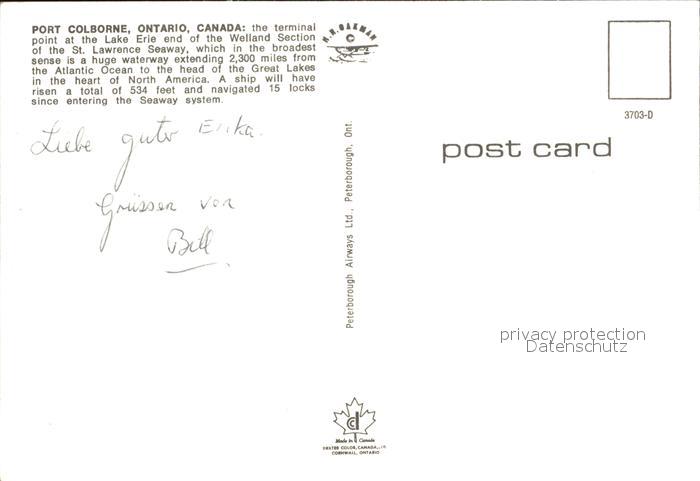 PORT COLBORNE, ONTARIO, CANADA: the terminal
point at the Lake Erie end of the Welland Section
of the St. Lawrence Seaway, which in the broadest
sense is a huge waterway extending 2,300 miles from
the Atlantic Ocean to the head of the Great Lakes
in the heart of North America. A ship will have
risen a total of 534 feet and navigated 15 locks
since entering the Seaway system.
Liebe gute Erika.
Grüssen von
Bill
Peterborough Airways Ltd., Peterborough, Ont.
OAKMAN
3703-D
post card
privacy protection
Datenschutz
Made in Canada
DEXTER COLOR, CANADA,
CORNWALL, ONTARIO